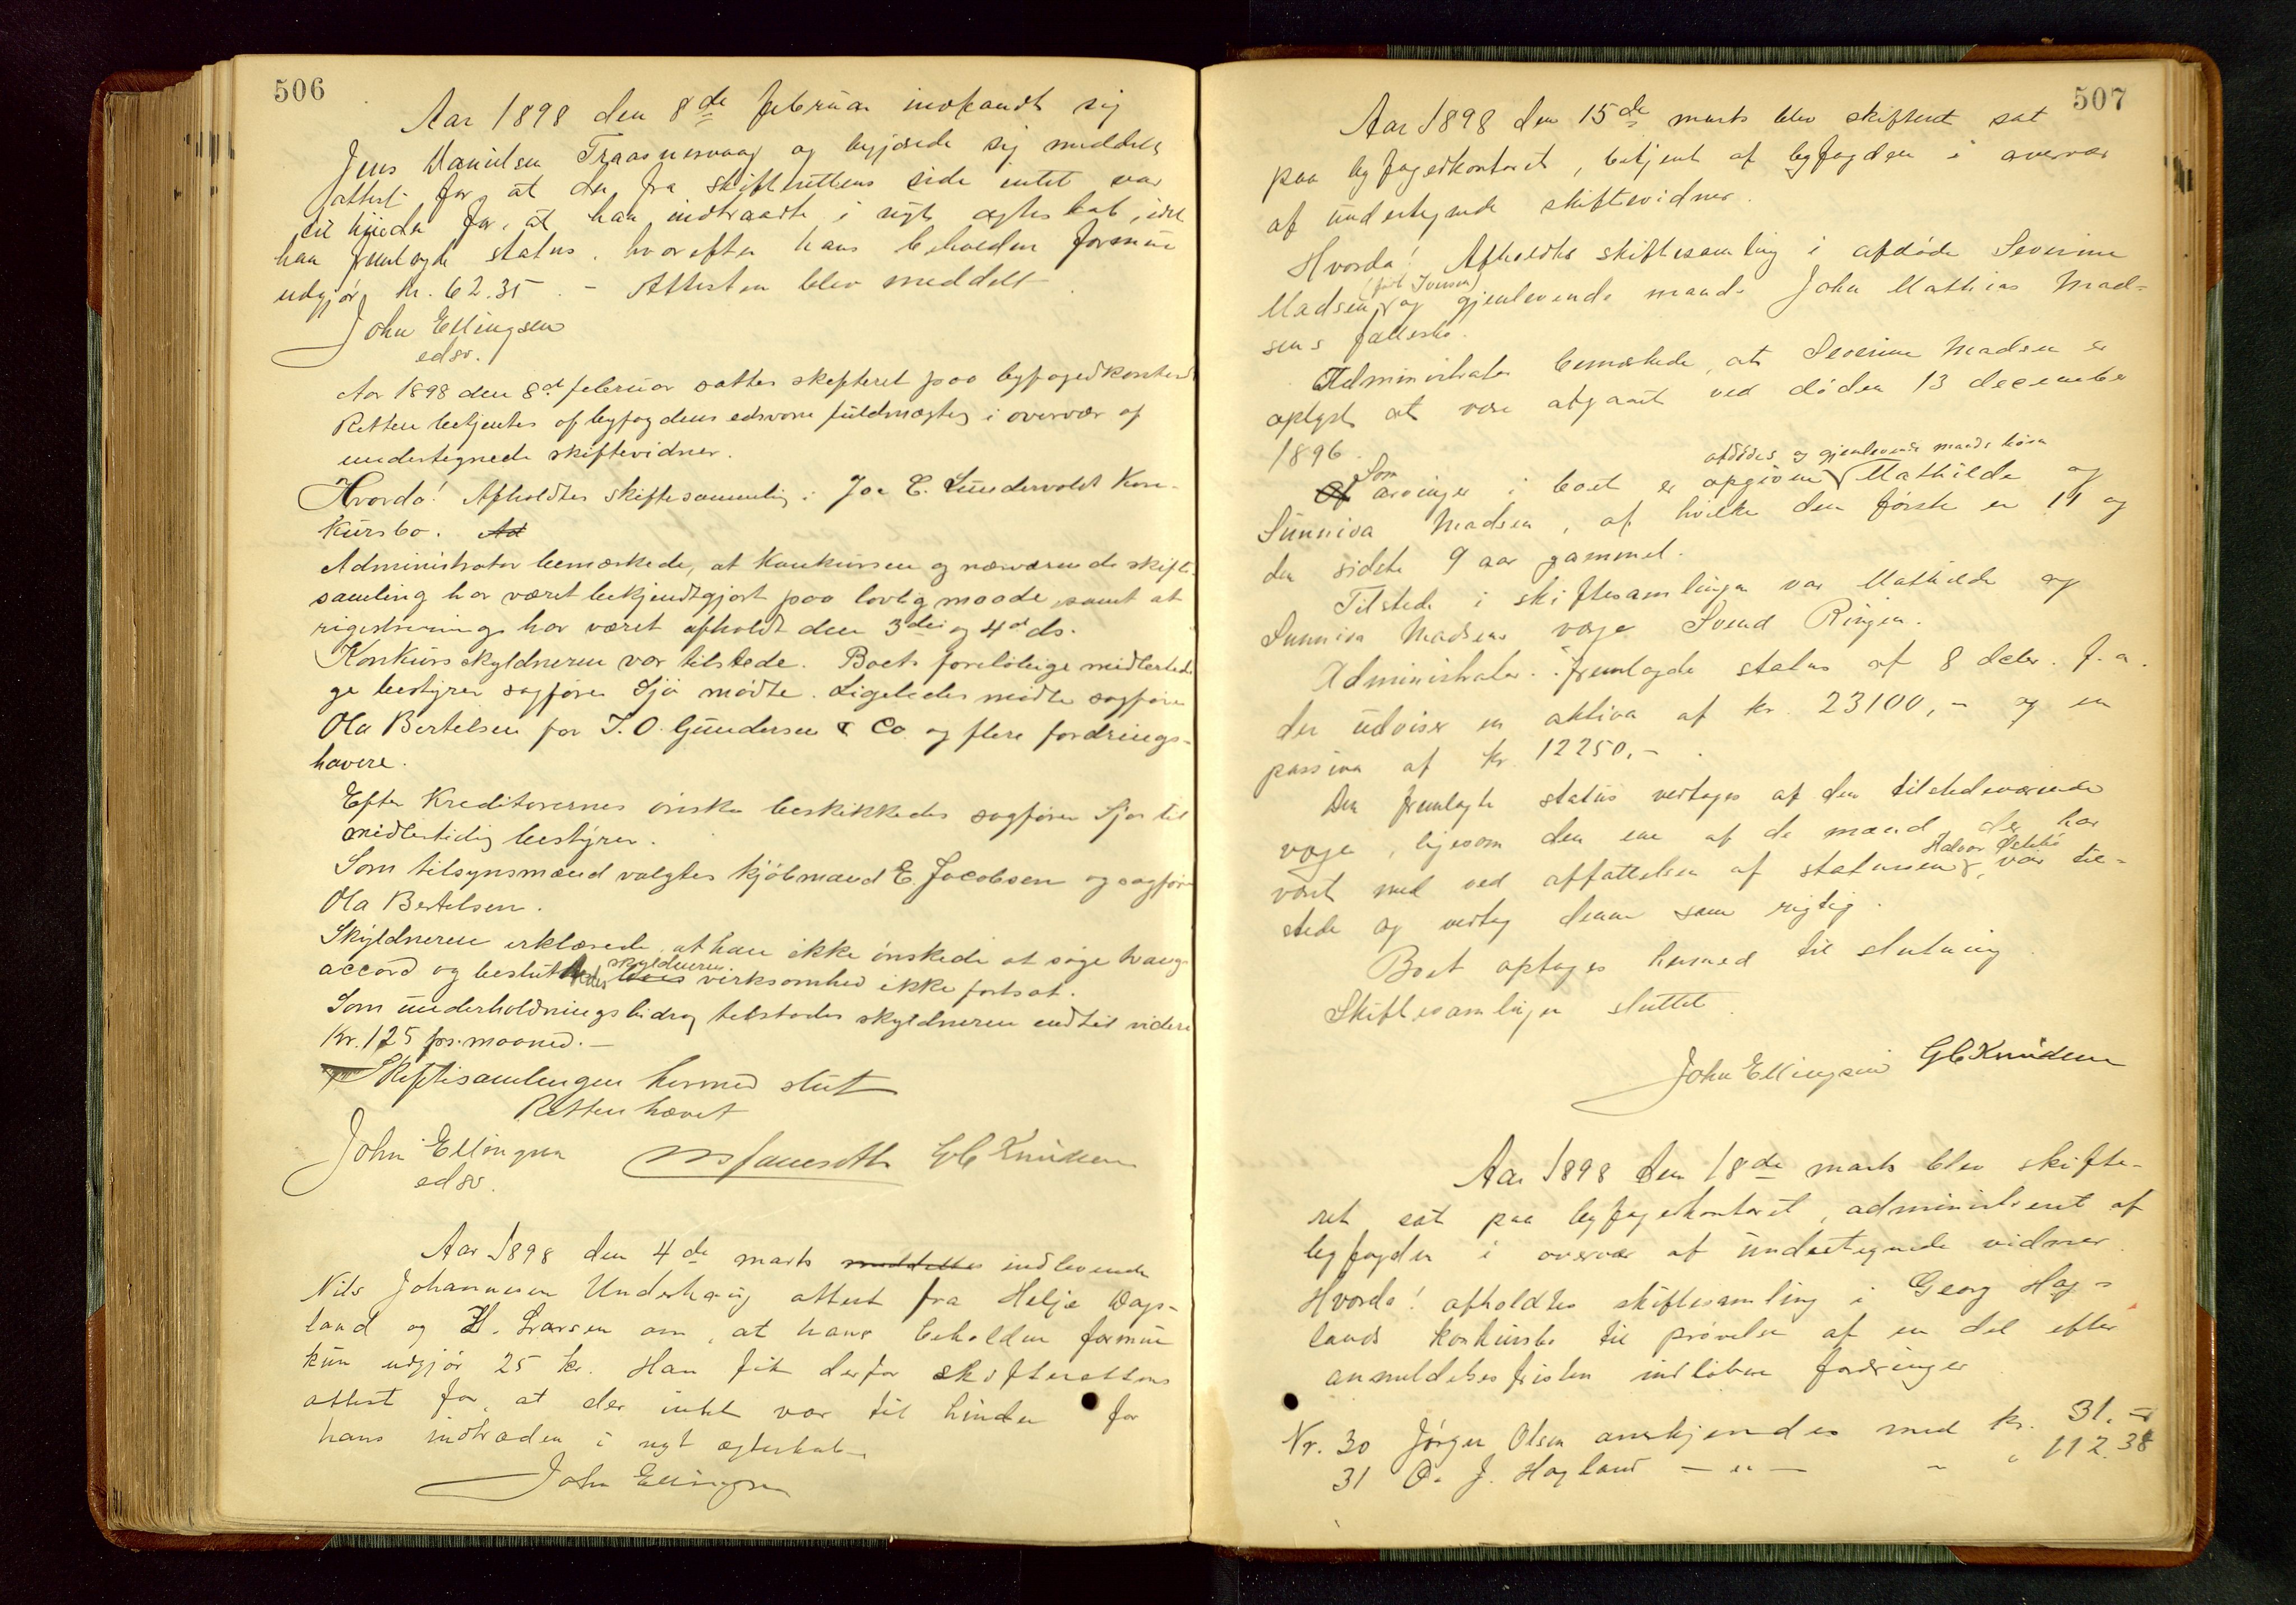 506
Aar 1898 den 8de februar indfandt sig
Jens Danielsen Traasnesvaag og begjærede sig meddelt
attest for, at der fra skifterettens side intet var
til hinder for, at han indtraadte i nyt ægteskab, idet
han fremlagde status, hvorefter hans beholden formue
udgjør kr. 62.35. - Attesten blev meddelt.
John Ellingsen
edsv.
Aar 1898 den 8d februar sattes skifteret paa byfogedkontoret
Retten betjentes af byfogdens edsvorne fuldmægtig i overvær af
undertegnede skiftevidner.
Hvorda! Afholdtes skiftesamling i Joe C. Lundervolds Kon-
kursbo. Ad
Administrator bemærkede, at Konkursen og nærværende skifte-
samling har været bekjendtgjort paa lovlig maade, samt at
registrering har været afholdt den 3die og 4d ds.
Konkursskyldneren var tilstede. Boets foreløbige midlertidi-
ge bestyrer sagfører Sjo mødte. Ligeledes mødte sagfører
Ola Bertelsen for T. O. Gundersen & Co og flere fordrings-
havere.
Efter Kreditorernes ønske beskikkedes sagfører Sjo til
midlertidig bestyrer.
Som tilsynsmænd valgtes kjøbmand E. Jacobsen og sagfører
Ola Bertelsen.
Skyldneren erklærede, at han ikke ønskede at søge tvangs
accord og besluttedes hans skyldnerens virksomhed ikke fortsat.
Som underholdningsbidrag tilstodes skyldneren indtil videre
Kr. 125 pr. maaned. -
Skiftesamlingen hermed slut
Retten hævet
John Ellingsen GC Knudsen
edsv.
Aar 1898 den 4de marts meddeltes indleverede
Nils Johannesen Underhaug attest fra Helje Dags-
land og H. Larsen om, at hans beholdne formue
kun udgjør 25 kr. Han fik derfor skifterettens
attest for, at der intet var til hinder for
hans indtræden i nyt ægteskab
John Ellingsen
507
Aar 1898 den 15de marts blev skifteret sat
paa byfogedkontoret, betjent af byfogden i overvær
af undertegnede skiftevidner.
Hvorda! Afholdtes skiftesamling i afdøde Severine
Madsen (født Iversen) og gjenlevende mand John Mathias Mad-
sens fællesbo.
Administrator bemærkede, at Severine Madsen er
oplyst at være afgaaet ved døden 13 december
1896.
Af Som arvinger i boet er opgivne afdødes og gjenlevende mands børn Mathilde og
Sunniva Madsen, af hvilke den første er 11 og
den sidste 9 aar gammel.
Tilstede i skiftesamlingen var Mathilde og
Sunniva Madsens verge Svend Ringen.
Administrator fremlagde status af 8 dcbr. f. a.
der udviser en aktiva af kr. 23100,- og en
passiva af kr. 12250,-.
Den fremlagte status vedtages af den tilstedeværende
verge, ligesom den ene af de mænd, der har
været med ved affattelsen af statusen, Halvor var til-
stede og vedtog denne som rigtig.
Boet optages hermed til slutning.
Skiftesamlingen sluttet.
John Ellingsen GC Knudsen
Aar 1898 den 18de marts blev skifte-
ret sat paa byfogedkontoret, administreret af
byfogden i overvær af undertegnede vidner.
Hvorda! afholdtes skiftesamling i Georg Hag-
lands konkursbo til prøvelse af en del efter
anmeldelsesfristen indløbne fordringer
Nr. 30 Jørgen Olsen anerkjendes med kr. 31.-
31 O. J. Hagland - " - - " 112.38